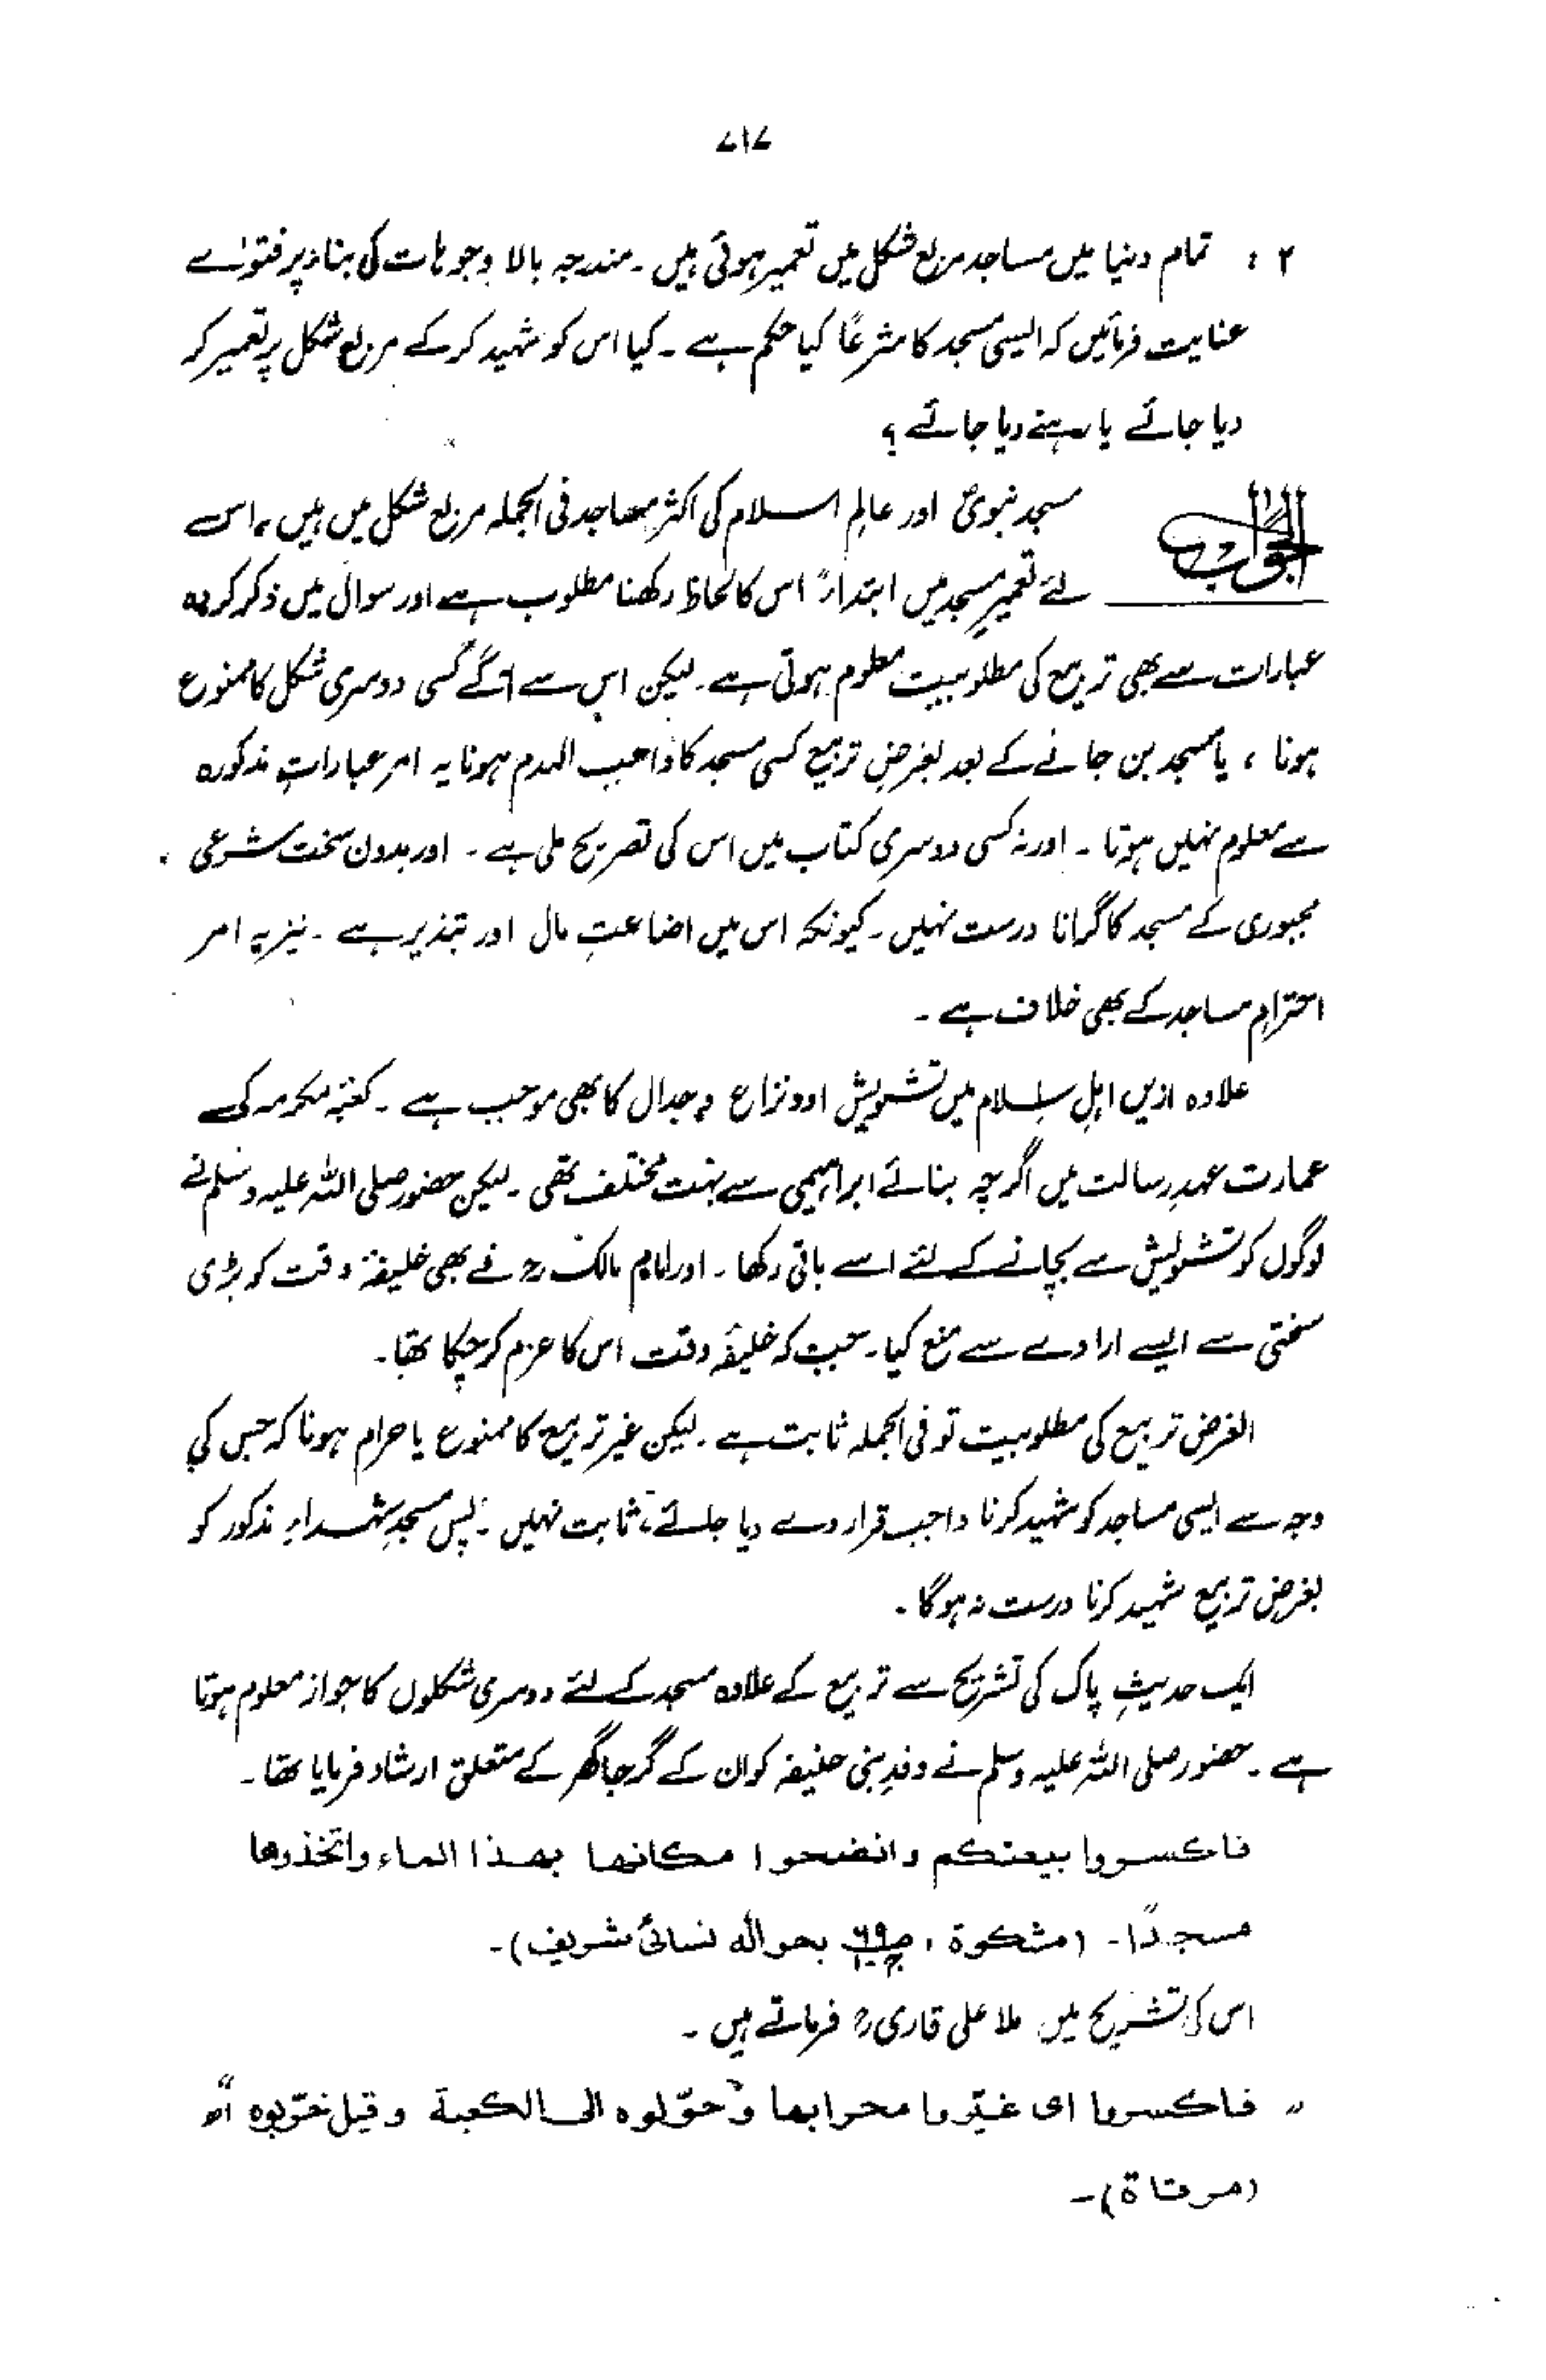 ۷۱۷
۲ : تمام دنیا میں مساجد مربع شکل میں تعمیر ہوئی ہیں ۔ مندرجہ بالا وجوہات کی بناء پر فتویٰ
عنایت فرمائیں کہ ایسی مسجد کا شرعًا کیا حکم ہے ۔ کیا اس کو شہید کر کے مربع شکل پر تعمیر کر
دیا جائے یا رہنے دیا جائے ؟
الجواب مسجد نبویؐ اور عالمِ اسلام کی اکثر مساجد فی الجملہ مربع شکل میں ہیں ، اس
لئے تعمیرِ مسجد میں ابتداءً اس کا لحاظ رکھنا مطلوب ہے اور سوال میں ذکر کردہ
عبارات سے بھی تربیع کی مطلوبیت معلوم ہوتی ہے ۔ لیکن اس سے آگے کسی دوسری شکل کا ممنوع
ہونا ، یا مسجد بن جانے کے بعد بغرضِ تربیع کسی مسجد کا واجب الہدم ہونا یہ امر عباراتِ مذکورہ
سے معلوم نہیں ہوتا ۔ اور نہ کسی دوسری کتاب میں اس کی تصریح ملی ہے ۔ اور بدون سخت شرعی
مجبوری کے مسجد کا گرانا درست نہیں ۔ کیونکہ اس میں اضاعتِ مال اور تبذیر ہے ۔ نیز یہ امر
احترامِ مساجد کے بھی خلاف ہے ۔
علاوہ ازیں اہلِ اسلام میں تشویش اور نزاع و جدال کا بھی موجب ہے ۔ کعبۂ مکرمہ کی
عمارت عہدِ رسالت میں اگرچہ بنائے ابراہیمی سے بہت مختلف تھی ۔ لیکن حضور صلی اللہ علیہ وسلم نے
لوگوں کو تشویش سے بچانے کے لئے اسے باقی رکھا ۔ اور امام مالکؒ نے بھی خلیفۂ وقت کو بڑی
سختی سے ایسے ارادے سے منع کیا ۔ جب کہ خلیفۂ وقت اس کا عزم کر چکا تھا ۔
الغرض تربیع کی مطلوبیت تو فی الجملہ ثابت ہے ۔ لیکن غیر تربیع کا ممنوع یا حرام ہونا کہ جس کی
وجہ سے ایسی مساجد کو شہید کرنا واجب قرار دے دیا جائے ، ثابت نہیں ۔ پس مسجدِ شہداء مذکور کو
بغرضِ تربیع شہید کرنا درست نہ ہوگا ۔
ایک حدیثِ پاک کی تشریح سے تربیع کے علاوہ مسجد کے لئے دوسری شکلوں کا جواز معلوم ہوتا
ہے ۔ حضور صلی اللہ علیہ وسلم نے وفدِ بنی حنیفہ کو ان کے گرجا گھر کے متعلق ارشاد فرمایا تھا ۔
فاکسروا بیعتکم وانضحوا مکانھا بھذا الماء واتخذوھا
مسجدًا ۔ (مشکوۃ ، ص۶۹ ج۱ بحوالہ نسائی شریف) ۔
اس کی تشریح میں ملا علی قاریؒ فرماتے ہیں ۔
" فاکسروا ای غیّروا محرابھا وحوّلوہ الی الکعبة وقیل خرّبوہ اھ "
(مرقاۃ) ۔